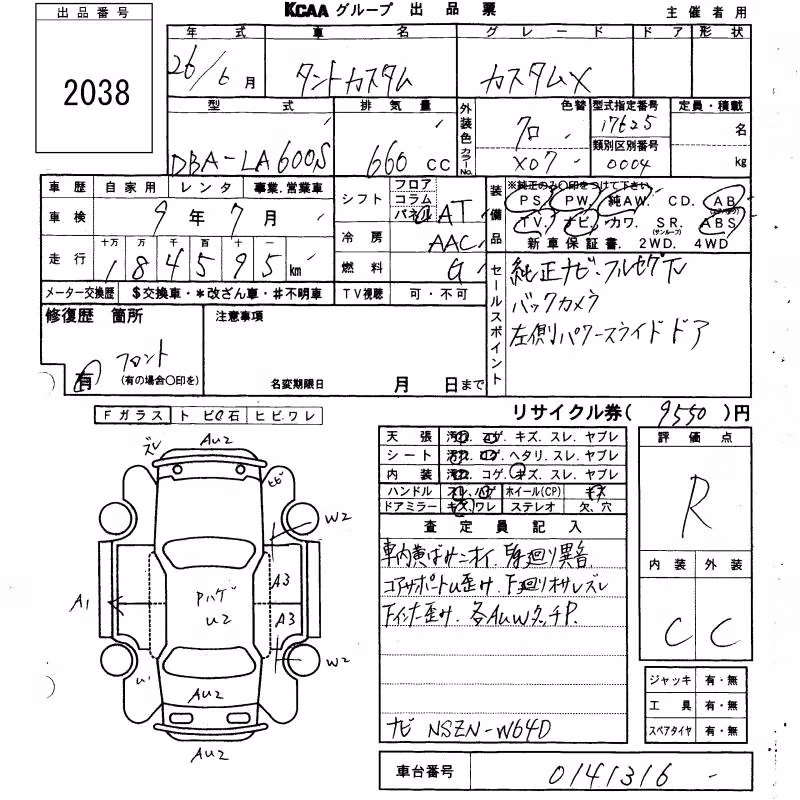 出品番号
2038
KCAA グループ 出品票
主催者用
年式 車名 グレード ドア 形状
26/6月 タントカスタム カスタムX
型式 排気量 外装色 色替 型式指定番号 定員・積載
DBA-LA600S 660 CC クロ 17625 名
カラーNo. X07 類別区別番号 0004 kg
車歴 自家用 レンタ 事業.営業車
車検 9年7月
走行 十万 万 千 百 十 一
184595 km
メーター交換歴 $交換車・*改ざん車・#不明車
シフト フロア コラム パネル AT
冷房 AAC
燃料 G
TV視聴 可・不可
装備品 ※純正のみ〇印をつけて下さい
PS. PW. 純AW. CD. AB (エアバック)
TV. ナビ. カワ. SR. (サンルーフ) ABS
新車保証書. 2WD. 4WD
セールスポイント
純正ナビ・フルセグTV
バックカメラ
左側パワースライドドア
修復歴 箇所
フロント
有 (有の場合〇印を)
注意事項
名変期限日 月 日まで
リサイクル券( 9550 )円
Fガラス トビ石 ヒビ.ワレ
ズレ
AU2
ヒビ
W2
A3
A3
A1
Pハゲ
U2
W2
U1
AU2
AU2
天張 汚れ. コゲ. キズ. スレ. ヤブレ
シート 汚れ. コゲ. ヘタリ. スレ. ヤブレ
内装 汚れ. コゲ. キズ. スレ. ヤブレ
ハンドル スレ. ハゲ ホイール(CP) キズ
ドアミラー キズ. ワレ ステレオ 欠. 穴
査定員記入
車内黄ばみニオイ. F廻り異音
コアサポート歪み. F廻りオサレズレ
Fインナー歪み. 各AUWタッチP.
ナビ NSZN-W64D
評価点
R
内装 外装
C C
ジャッキ 有・無
工具 有・無
スペアタイヤ 有・無
車台番号 0141316